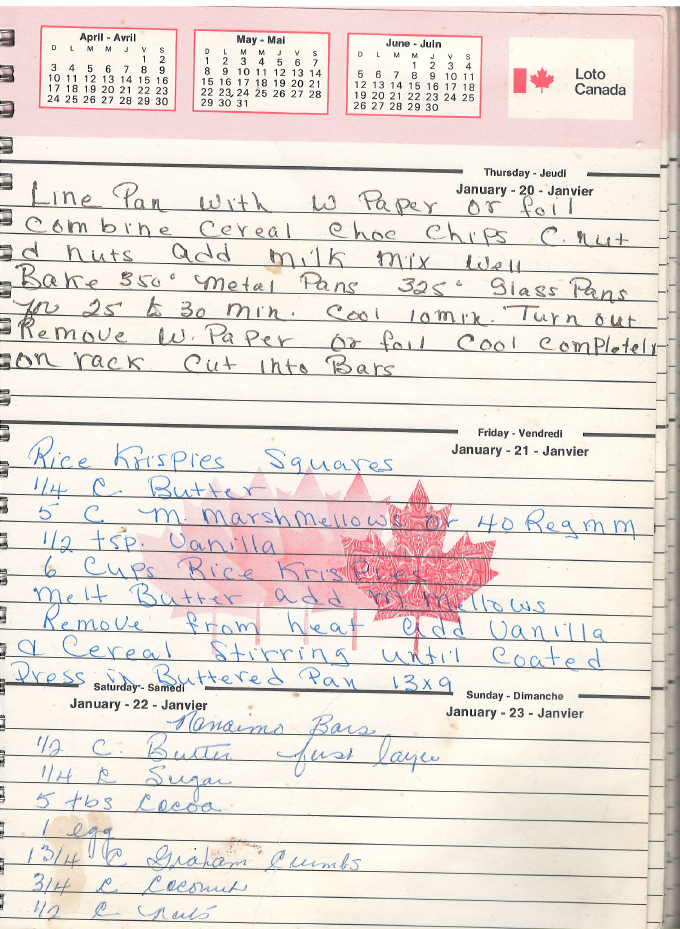 April - Avril
D L M M J V S
1 2
3 4 5 6 7 8 9
10 11 12 13 14 15 16
17 18 19 20 21 22 23
24 25 26 27 28 29 30
May - Mai
D L M M J V S
1 2 3 4 5 6 7
8 9 10 11 12 13 14
15 16 17 18 19 20 21
22 23 24 25 26 27 28
29 30 31
June - Juin
D L M M J V S
1 2 3 4
5 6 7 8 9 10 11
12 13 14 15 16 17 18
19 20 21 22 23 24 25
26 27 28 29 30
Loto
Canada
Thursday - Jeudi
January - 20 - Janvier
Line Pan with W Paper or foil
Combine Cereal Choc Chips C. nut
d nuts add milk mix well
Bake 350° metal Pans 325° Glass Pans
for 25 to 30 min. Cool 10 min. Turn out
Remove W. Paper or foil Cool completely
on rack Cut into Bars
Friday - Vendredi
January - 21 - Janvier
Rice Krispies Squares
1/4 C. Butter
5 C m. marshmellows or 40 Reg m m
1/2 tsp. Vanilla
6 Cups Rice Krispies
melt Butter add m mellows
Remove from heat add Vanilla
& Cereal Stirring until Coated
Press in Buttered Pan 13x9
Saturday - Samedi
January - 22 - Janvier
Sunday - Dimanche
January - 23 - Janvier
Nanaimo Bars
1/2 C. Butter first layer
1/4 C Sugar
5 tbs Cocoa
1 egg
1 3/4 C Graham Crumbs
3/4 C Coconut
1/2 C nuts